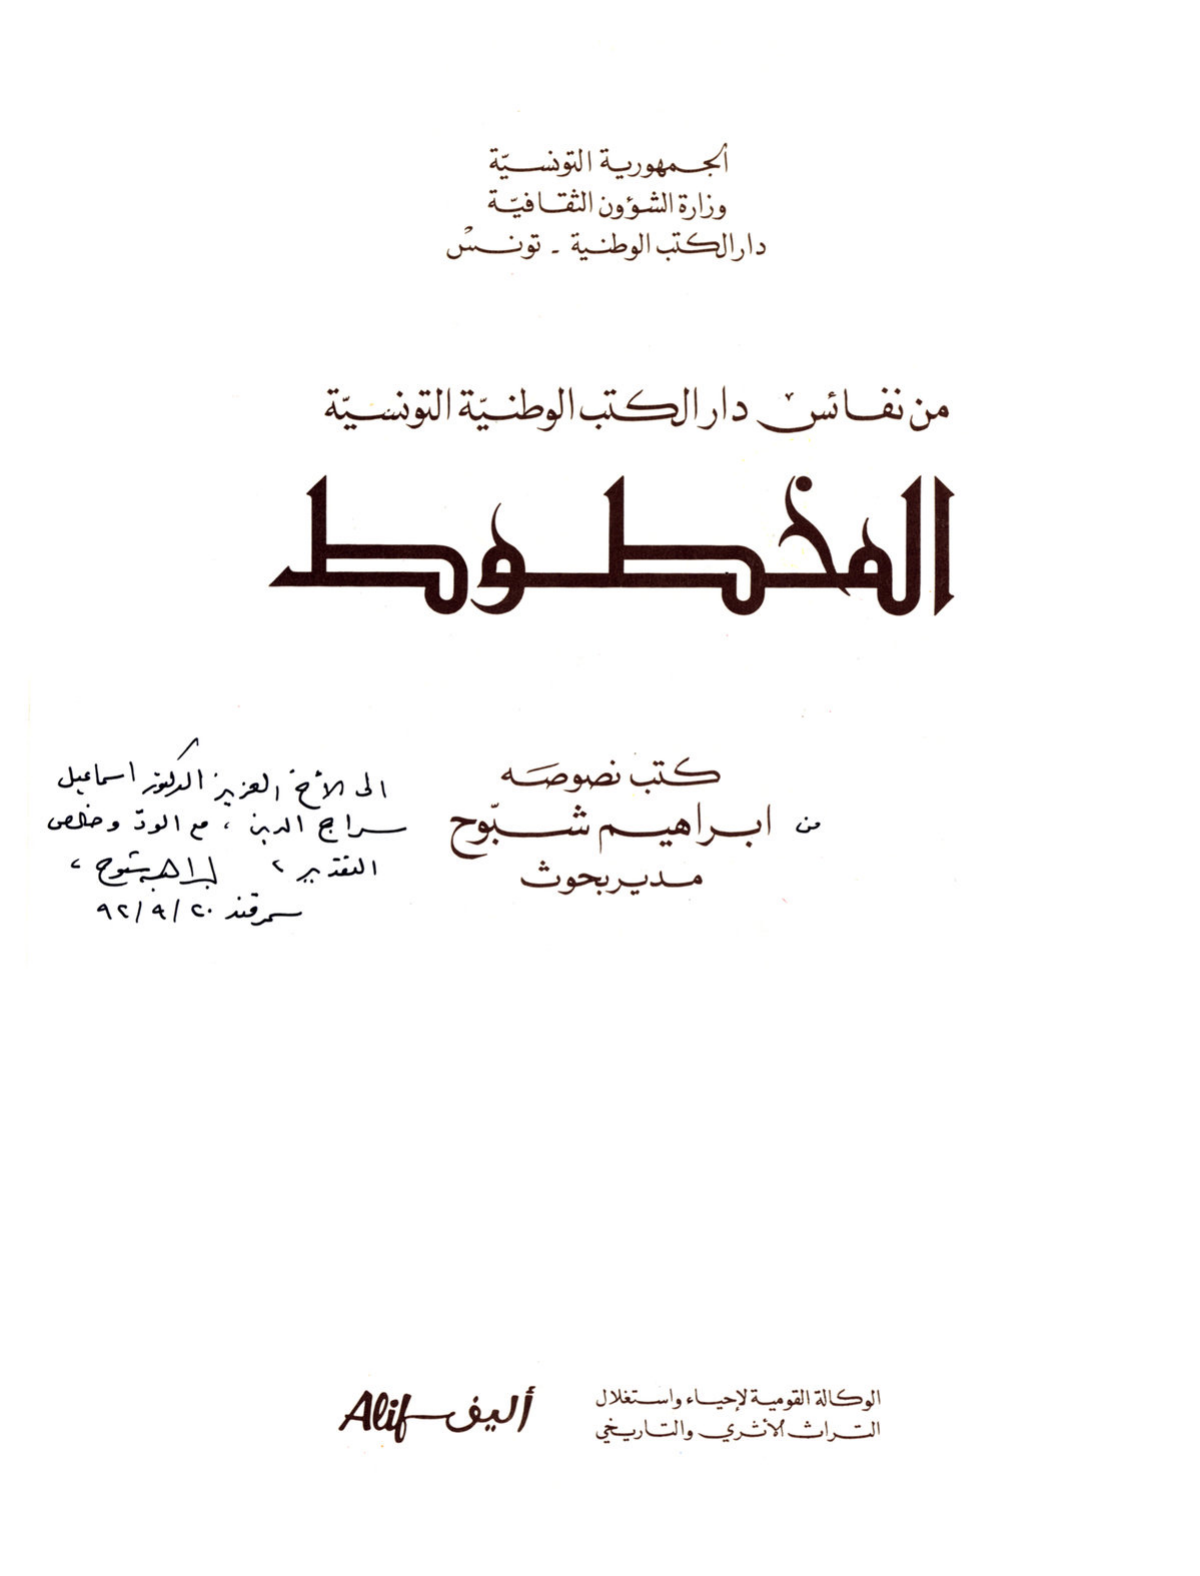 الجمهورية التونسيّة
وزارة الشؤون الثقافيّة
دار الكتب الوطنية - تونس
من نفائس دار الكتب الوطنيّة التونسيّة
المخطوط
كتب نصوصه
من ابراهيم شبّوح
مدير بحوث
الى الأخ العزيز الدكتور اسماعيل
سراج الدين ، مع الودّ وخالص
التقدير ، ابراهيم شبوح ،
سمرقند ٩٢/٩/٢٠
الوكالة القومية لإحياء واستغلال
التراث الأثري والتاريخي
أليف Alif